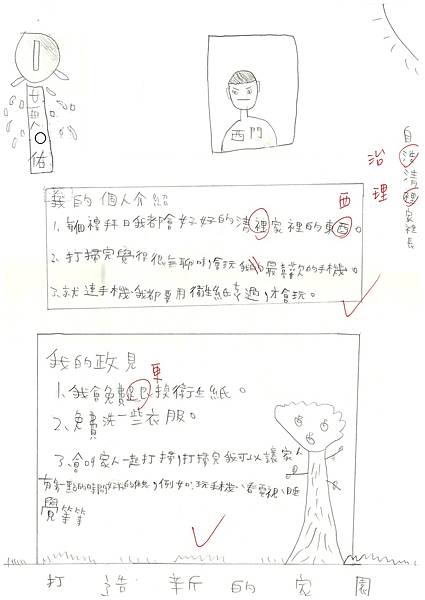 1
佑
西門
自洗清裡家裡長
治
理
我的個人介紹
西
1.每個禮拜日我都會好好的清裡家裡的東西。
2.打掃完覺得很無聊 會玩 最喜歡的手機。
3.就連手機我都要用衛生紙 過,才會玩。
我的政見
更
1.我會免費 換衛生紙。
2、免費洗一些衣服。
3、會叫家人一起打掃,打掃完我可以讓家人
一點的時間 ,例如:玩手機、看電視、睡
覺等等
打造新的家園